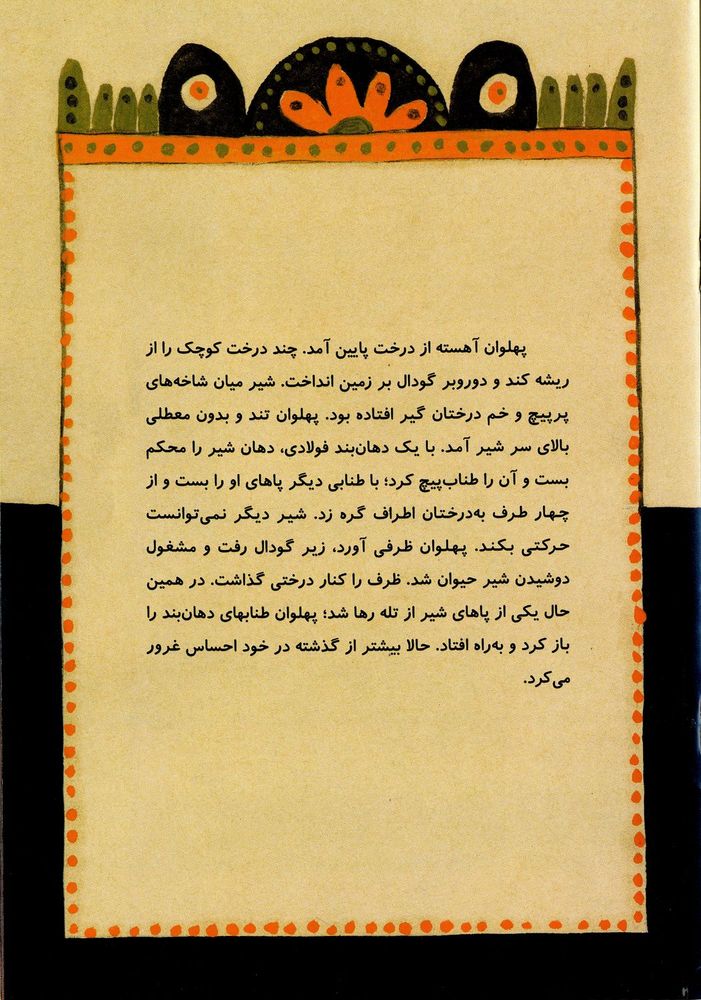 پهلوان آهسته از درخت پایین آمد. چند درخت کوچک را از
ریشه کند و دوروبر گودال بر زمین انداخت. شیر میان شاخه‌های
پرپیچ و خم درختان گیر افتاده بود. پهلوان تند و بدون معطلی
بالای سر شیر آمد. با یک دهان‌بند فولادی، دهان شیر را محکم
بست و آن را طناب‌پیچ کرد؛ با طنابی دیگر پاهای او را بست و از
چهار طرف به‌درختان اطراف گره زد. شیر دیگر نمی‌توانست
حرکتی بکند. پهلوان ظرفی آورد، زیر گودال رفت و مشغول
دوشیدن شیر حیوان شد. ظرف را کنار درختی گذاشت. در همین
حال یکی از پاهای شیر از تله رها شد؛ پهلوان طنابهای دهان‌بند را
باز کرد و به‌راه افتاد. حالا بیشتر از گذشته در خود احساس غرور
می‌کرد.